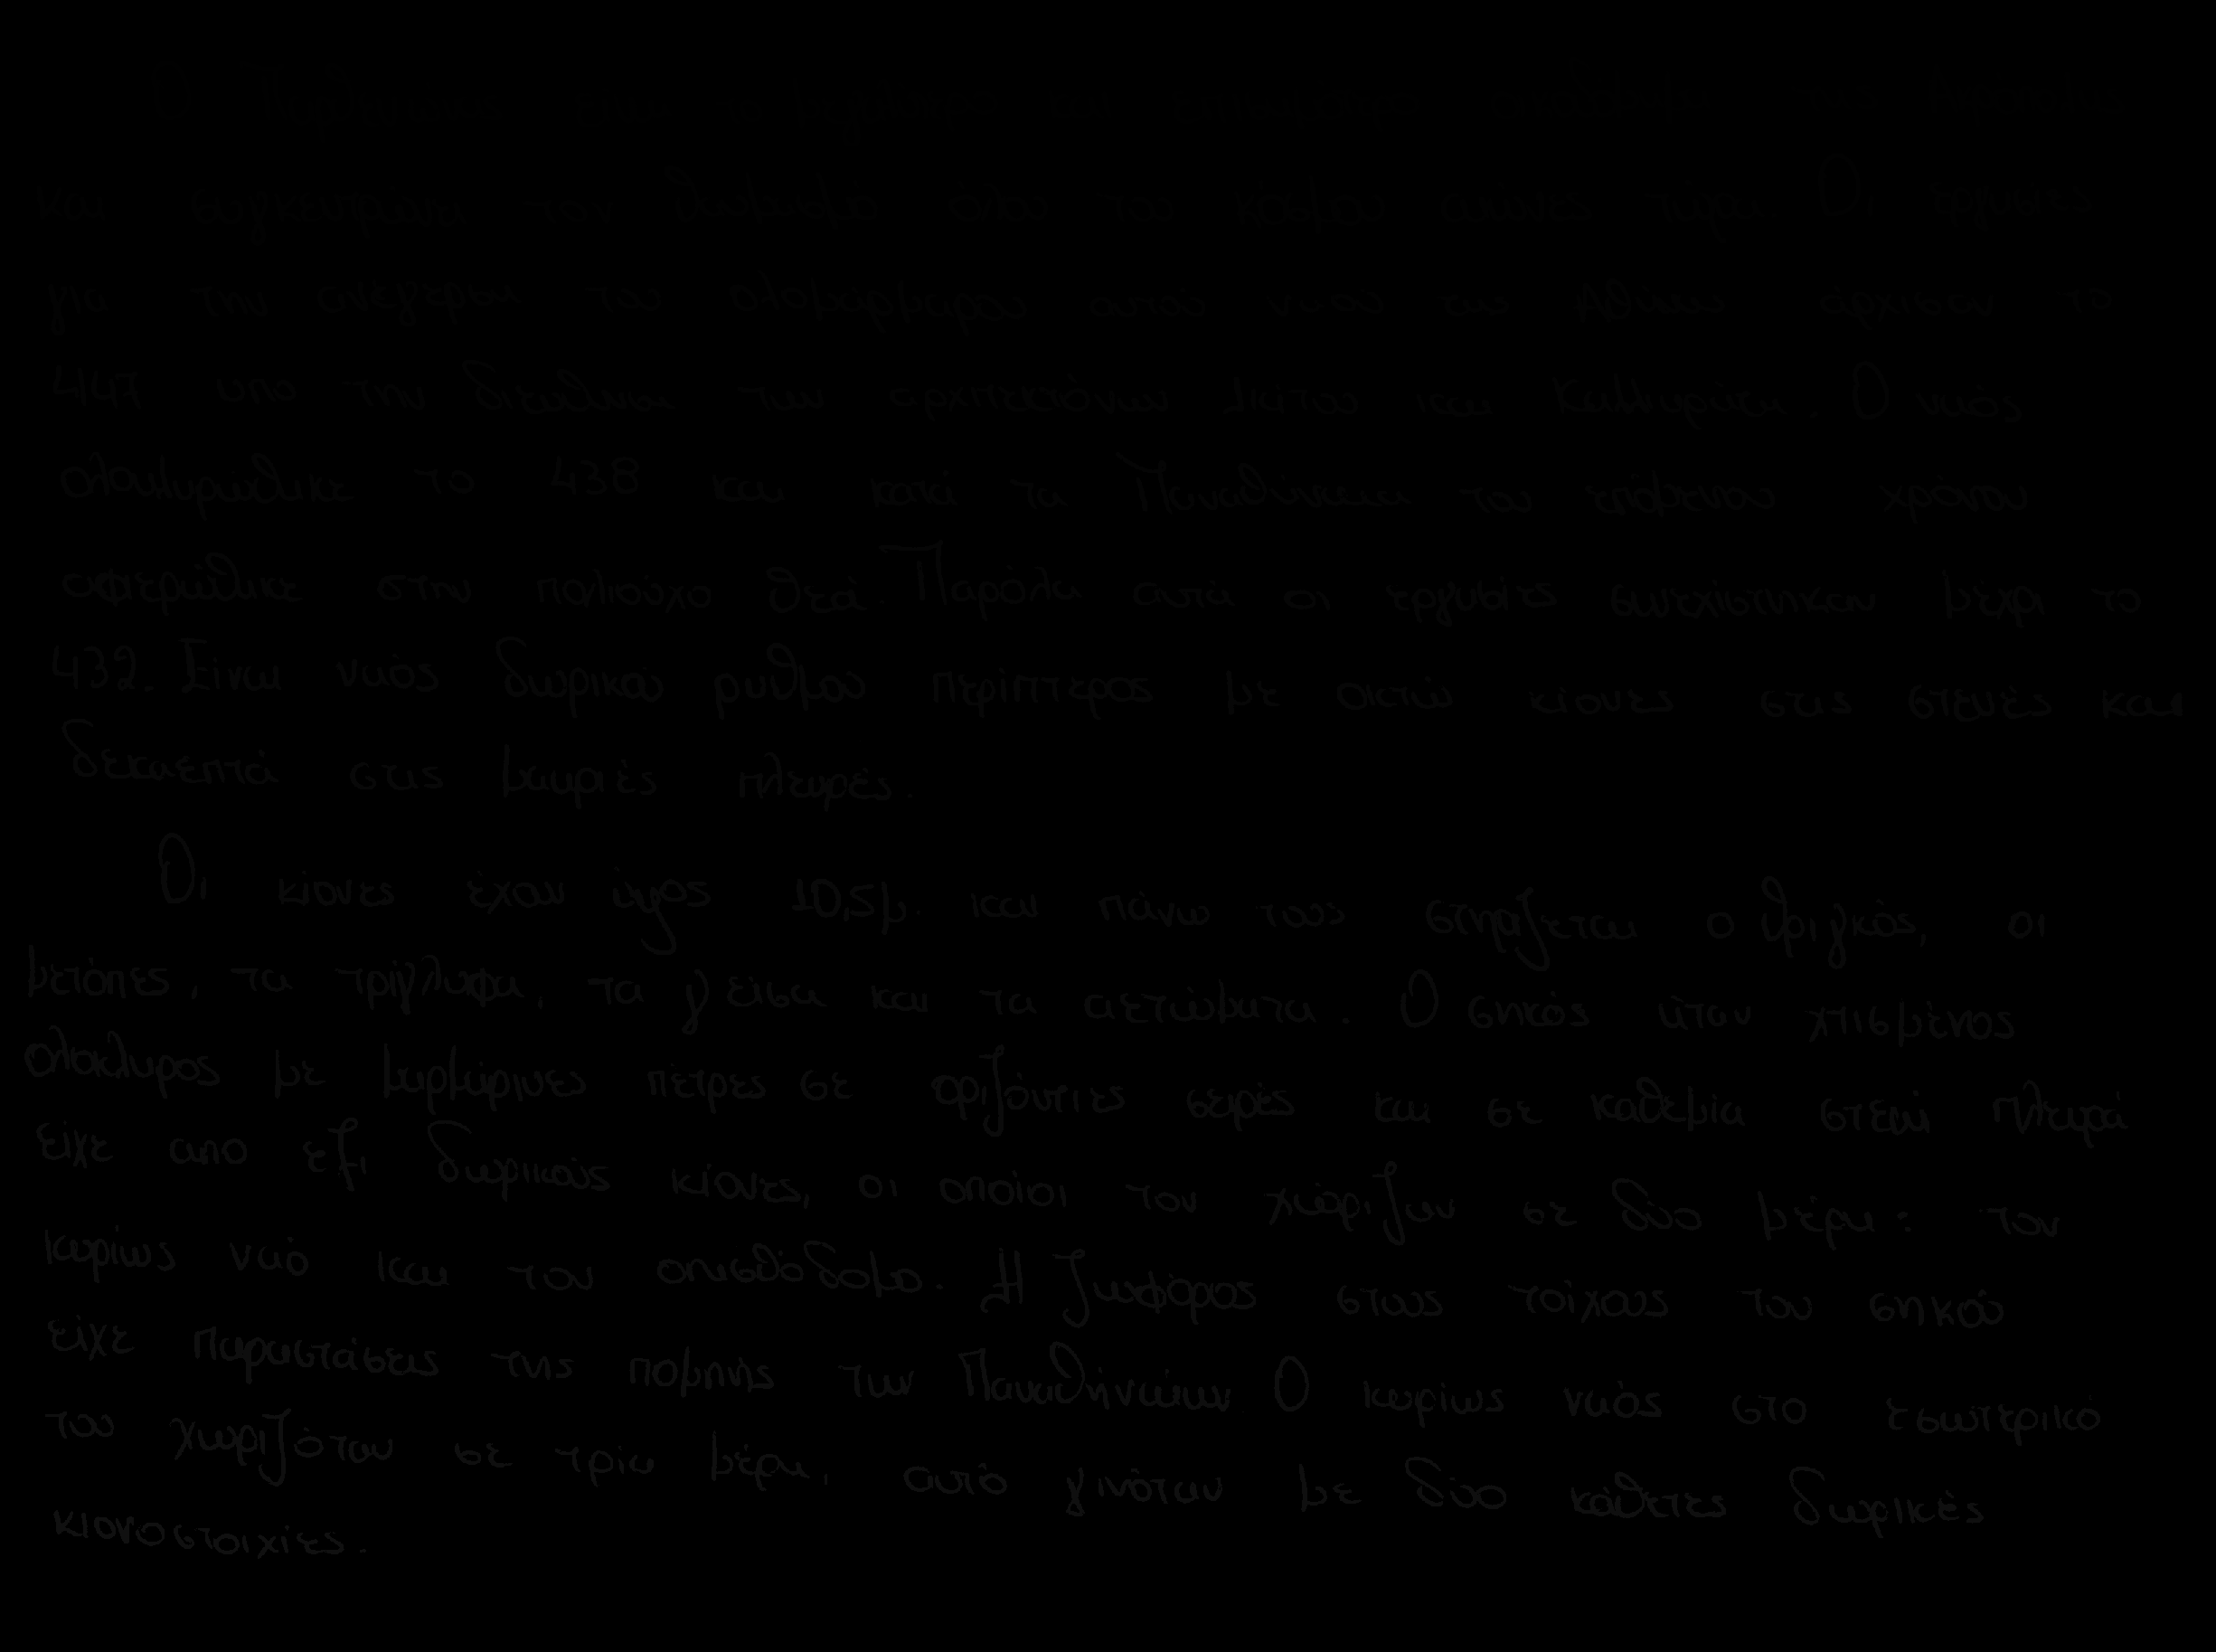 Ο Παρθενώνας είναι
και συγκεντρώνει τον θαυμασμό όλου του κόσμου αιώνες τώρα. Οι εργασίες
για την ανέγερση του ολομάρμαρου αυτού ναού της Αθήνας άρχισαν το
447 υπο την διεύθυνση των αρχιτεκτόνων Ικτίνου και Καλλικράτη. Ο ναός
ολοκληρώθηκε το 438 και κατά τα Παναθήναια του επόμενου χρόνου
αφιερώθηκε στην πολιούχο θεά. Παρόλα αυτά οι εργασίες συνεχίστηκαν μέχρι το
432. Είναι ναός δωρικού ρυθμού περίπτερος με οκτώ κίονες στις στενές και
δεκαεπτά στις μακριές πλευρές.
Οι κίονες έχουν ύψος 10,5μ. και πάνω τους στηρίζεται ο θριγκός, οι
μετόπες, τα τρίγλυφα, τα γείσα και τα αετώματα. Ο σηκός ήταν χτισμένος
ολόκληρος με μαρμάρινες πέτρες σε οριζόντιες σειρές και σε καθεμία στενή πλευρά
είχε απο εξι δωρικούς κίονες, οι οποίοι τον χώριζαν σε δύο μέρη: τον
κυρίως ναό και τον οπισθόδομο. Η ζωφόρος στους τοίχους του σηκού
είχε παραστάσεις της πομπής των Παναθήναίων. Ο κυρίως ναός στο εσωτερικό
του χωριζόταν σε τρία μέρη, αυτό γινόταν με δύο κάθετες δωρικές
κιονοστοιχίες.